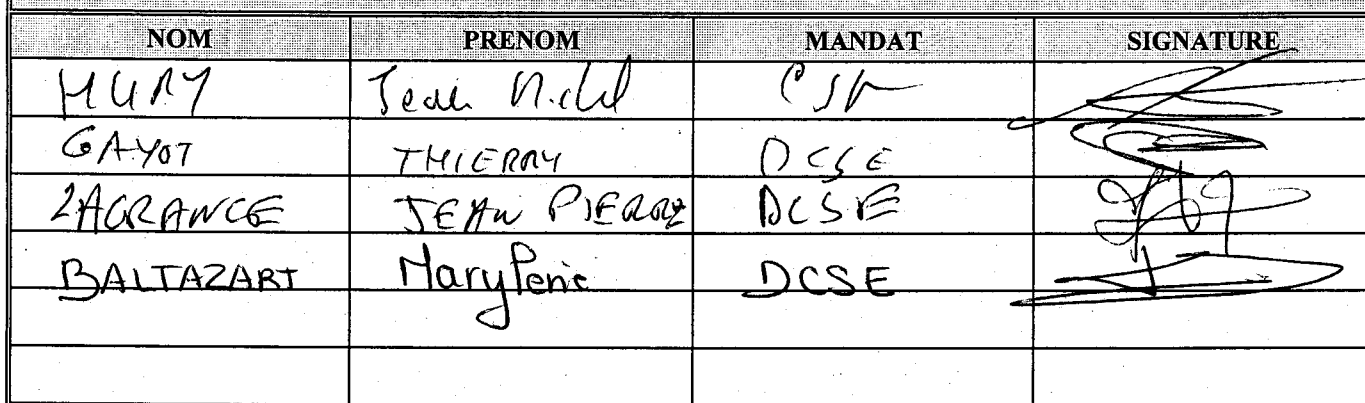 NOM PRENOM MANDAT SIGNATURE
HURY Jean Michel
GAYOT THIERRY DCSE
LAGRANGE JEAN PIERRE DCSE
BALTAZART DCSE